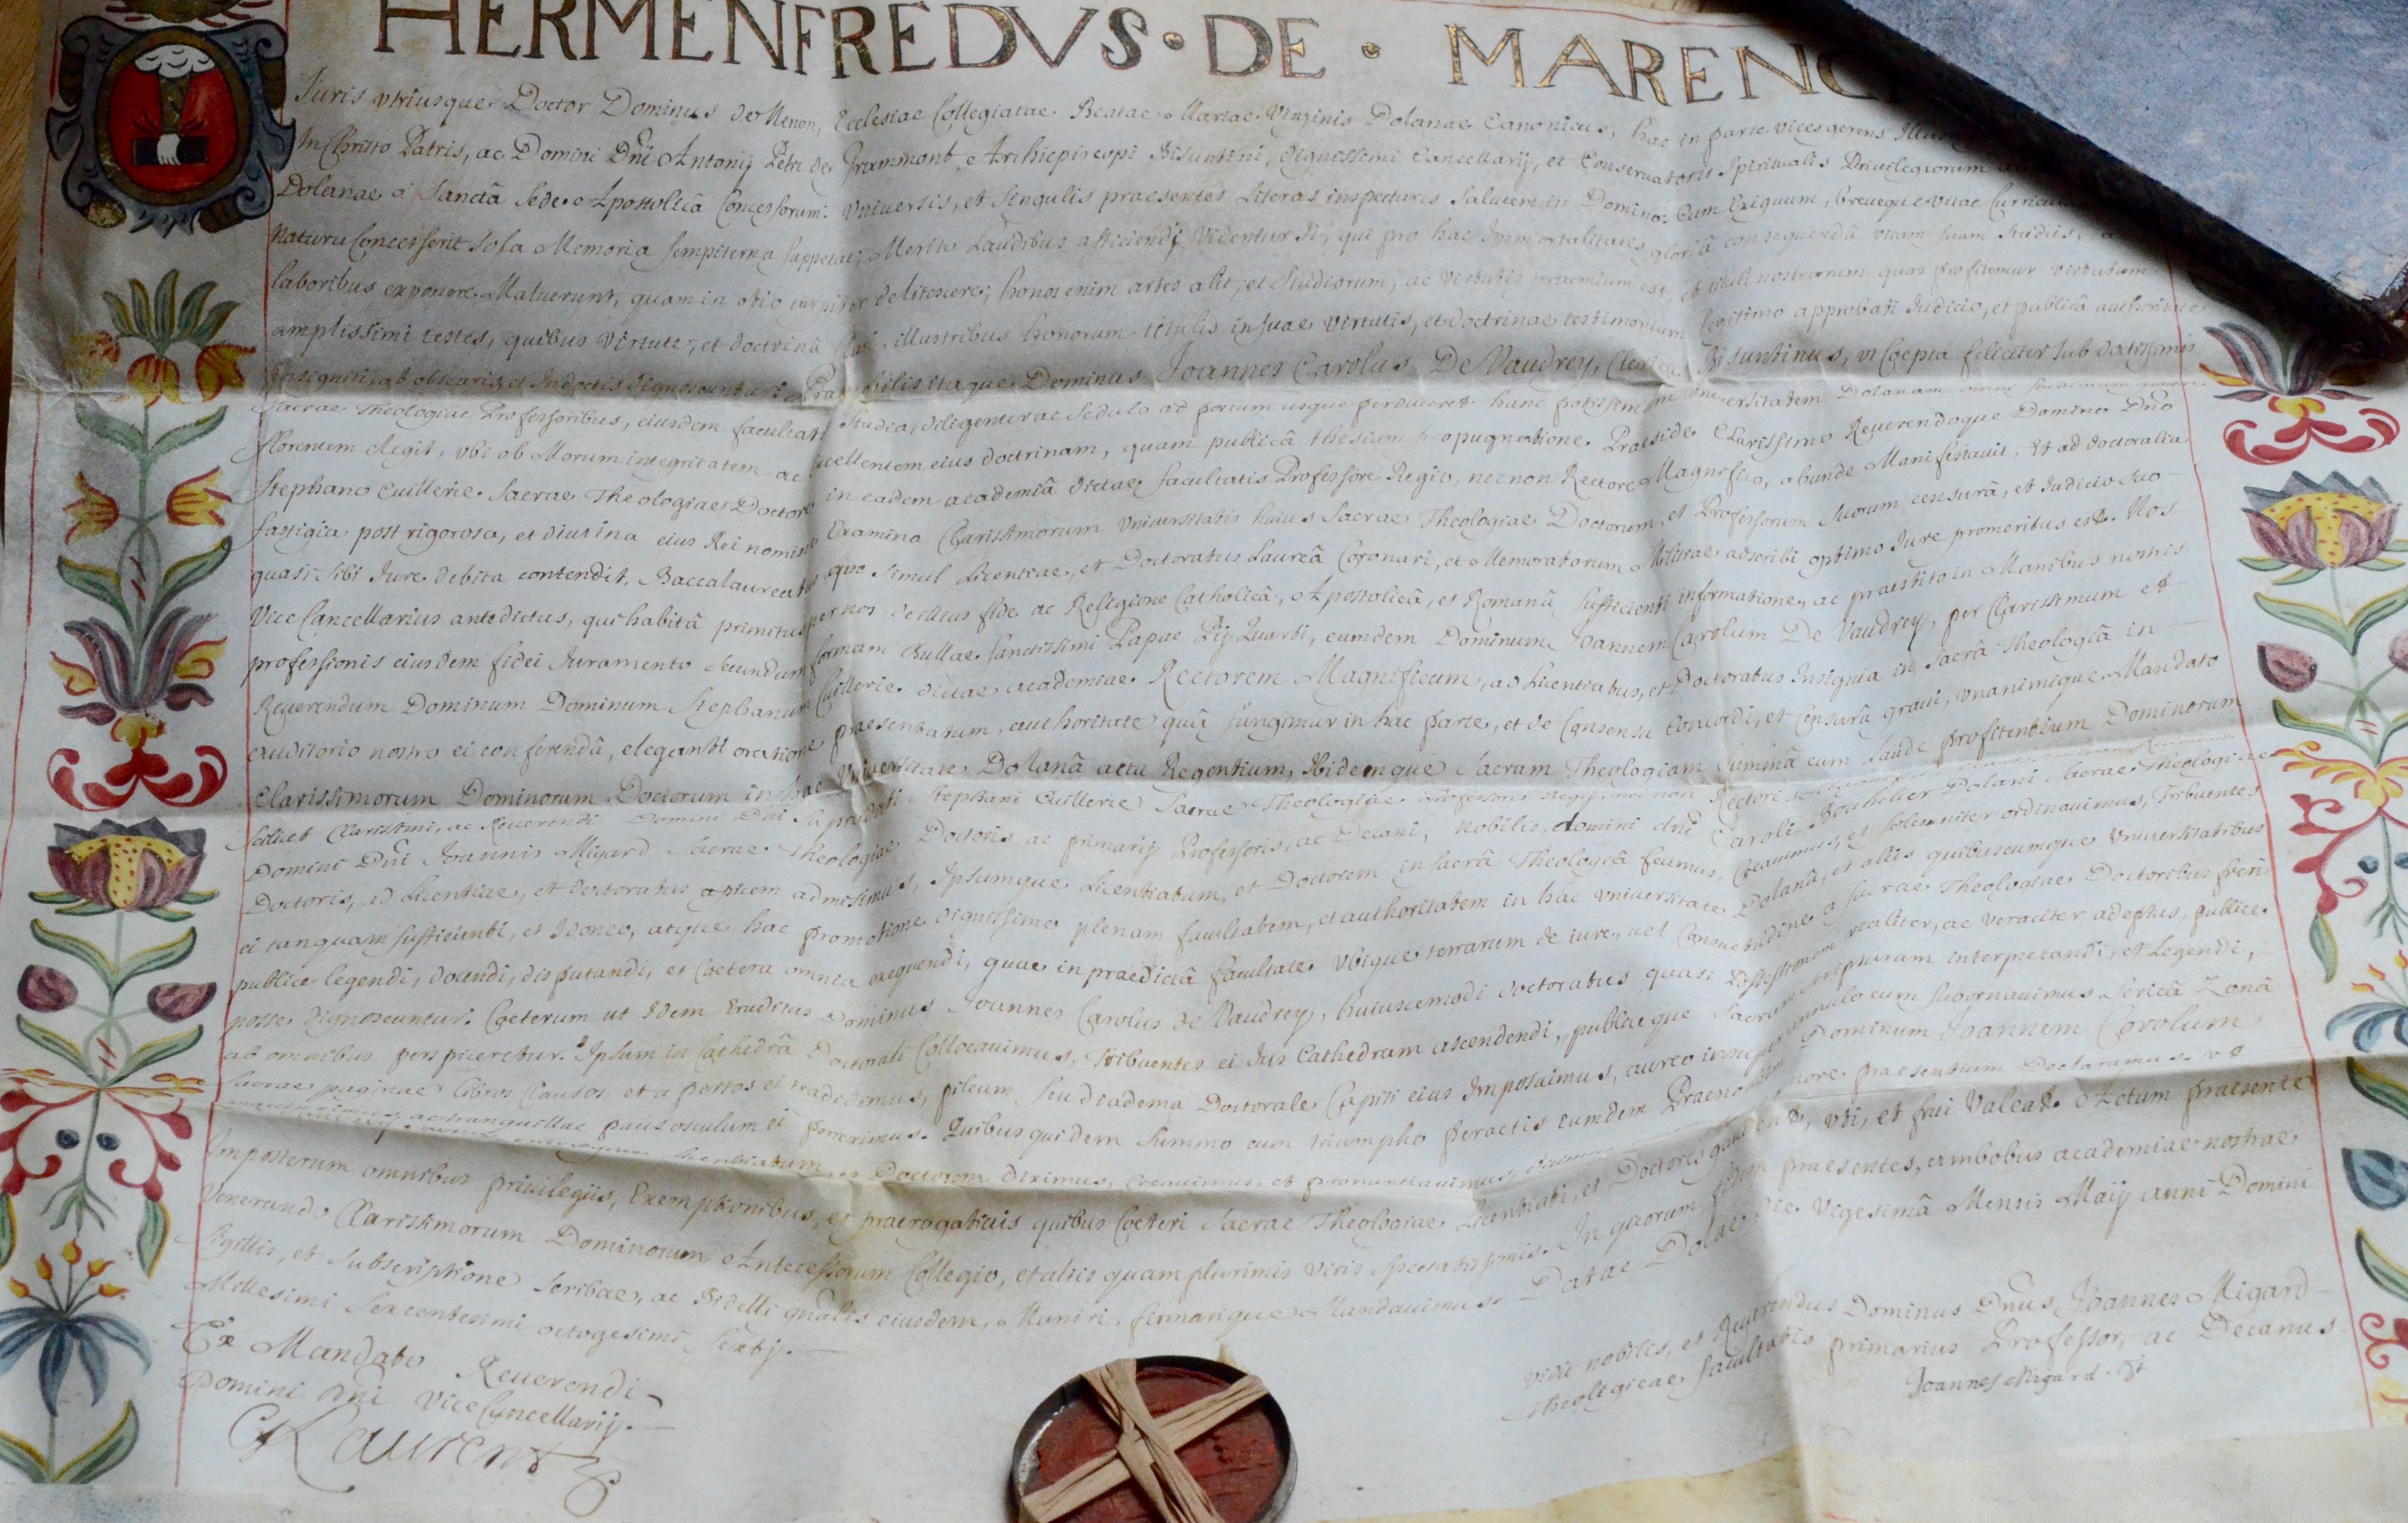 HERMENFREDVS · DE · MARENC
Iuris vtriusque Doctor Dominus de Menon, Ecclesiae Collegiatae Beatae Mariae Virginis Dolanae Canonicus, hac in parte vices gerens
In Christo Patris, ac Domini Dñi Antonij Petri de Grammont Archiepiscopi Bisuntini, dignissimi Cancellarij, et Conservatoris Spiritualis Privilegiorum
Dolanae a Sanctâ Sede Apostolicâ Concessorum: Vniuersis, et Singulis praesentes Literas inspecturis Salutem in Domino: Cum Exiguum, breueque vitae Curriculum
Natura Concesserit Sola Memoria Sempiterna Suppetat; Merito Laudibus afficiendi Videntur Ij, qui pro hac Immortalitatis gloriâ consequendâ vitam suam Studiis,
laboribus exponere Maluerunt, quam in otio turpiter delitescere; honos enim artes alit, et Studiorum, ac virtutis praemium est, et tituli nostrarum quas profitemur virtutum
amplissimi testes, quibus virtute, et doctrinâ clari, illustribus honorum titulis in suae virtutis, et doctrinae testimonium legitimo approbati Iudicio, et publicâ authoritate
insigniti, ab obscuris, et Indoctis dignoscuntur. Praenobilis itaque Dominus Ioannes Carolus De Vaudrey, Clericus Bisuntinus, vt Coepta feliciter sub doctissimis
Sacrae Theologiae Professoribus, eiusdem facultatis Studia, diligenter ac Sedulo ad portum usque perduceret hanc potissimum vniversitatem Dolanam omni
florentem elegit, vbi ob Morum integritatem ac excellentem eius doctrinam, quam publicâ thesium propugnatione Praeside Clarissimo Reuerendoque Domino Dño
Stephano Cuillerie Sacrae Theologiae Doctore in eadem academiâ dictae facultatis Professore Regio, necnon Rectore Magnifico, abunde Manifestauit, Et ad doctoralia
fastigia post rigorosa, et diutina eius Rei nomine Examina Clarissimorum Vniuersitatis huius Sacrae Theologiae Doctorum, et Professorum Suorum censurâ, et Iudicio suo
quasi sibi Iure debita contendit, Baccalaureatus quo simul Licentiae, et Doctoratus Laureâ Coronari, et Memoratorum Militiae adscribi optimo Iure promeritus est. Nos
Vice Cancellarius antedictus, qui habitâ primitus per nos de illius fide ac Religione Catholicâ, Apostolicâ, et Romanâ Sufficienti informatione, ac praestito in Manibus nostris
professionis eiusdem fidei Iuramento Secundum formam Bullae Sanctissimi Papae Pij Quarti, eumdem Dominum Ioannem Carolum De Vaudrey, per Clarissimum et
Reuerendum Dominum Dominum Stephanum Cuillerie dictae academiae Rectorem Magnificum, ad Licentiatus, et Doctoratus Insignia in Sacrâ Theologiâ in
auditorio nostro ei conferenda, eleganti oratione praesentatum, authoritate quâ fungimur in hac parte, et de Consensu Concordi, et Censurâ graui, vnanimique Mandato
Clarissimorum Dominorum Doctorum in hac Vniuersitate Dolanâ actu Regentium, Ibidemque Sacram Theologiam Summâ cum Laude profitentium Dominorum
Scilicet Clarissimi, ac Reuerendi Domini Dñi Stephani Cuillerie Sacrae Theologiae Professoris Regij, nec non Rectoris
Domini Dñi Ioannis Migard Sacrae Theologiae Doctoris, ac primarij Professoris, ac Decani, Nobilis, domini dñi Caroli Iouhelier Dolani Sacrae Theologiae
Doctoris, ad Licentiae, et doctoratus apicem admisimus, Ipsumque Licentiatum, et Doctorem in Sacrâ Theologiâ fecimus, Creauimus, et Solemniter ordinauimus, Tribuentes
ei tanquam sufficienti, et Idoneo, atque hac promotione dignissimo plenam facultatem, et authoritatem in hac vniuersitate Dolanâ, et aliis quibuscumque vniuersitatibus
publice legendi, docendi, disputandi, et Coetera omnia exequendi, quae in praedictâ facultate vbique terrarum de iure, uel Consuetudine a Sacrae Theologiae Doctoribus fieri
posse dignoscuntur. Coeterum ut Idem Eruditus Dominus Ioannes Carolus de Vaudrey, huiuscemodi doctoratus quasi possessionem realiter, ac veraciter adeptus, publice
ab omnibus perspiceretur. Ipsum in Cathedrâ Doctorali Collocauimus, tribuentes ei Ius Cathedram ascendendi, publiceque Sacram Scripturam interpretandi, et Legendi,
Sacrae paginae libros Clausos, et apertos ei tradedimus, pileum Seu diadema Doctorale Capiti eius Imposuimus, aureo insuper annulo eum Subornauimus, Sericâ Zonâ
ac tranquillae pacis osculum ei porreximus. Quibus quidem Summo cum triumpho peractis eumdem Praenobilem Dominum Ioannem Carolum
Licentiatum Doctorem diximus, creauimus, et pronunciauimus, tenore praesentium Declaramus. vt
Imposterum omnibus priuilegiis, Exemptionibus, et praerogatiuis quibus Coeteri Sacrae Theologiae Licentiati, et Doctores gaudent, vti, et frui Valeat. Actum praesente
Venerando Clarissimorum Dominorum Antecessorum Collegio, et aliis quam plurimis viris Spectatissimis. In quorum fidem praesentes, ambobus academiae nostrae
Sigillis, et Subscriptione Scribae, ac Bidelli gñalis eiusdem, Muniri, firmarique Mandauimus. Datae Dolae die Vigesimâ Mensis Maij anni Domini
Millesimi Sexcentesimi octogesimi Sexti.
Ex Mandato Reuerendi
Domini Dñi ViceCancellarij.
Laurent
Vidit nobilis, et Reuerendus Dominus Dñus Ioannes Migard
theologicae facultatis primarius Professor, ac Decanus
Joannes Migard